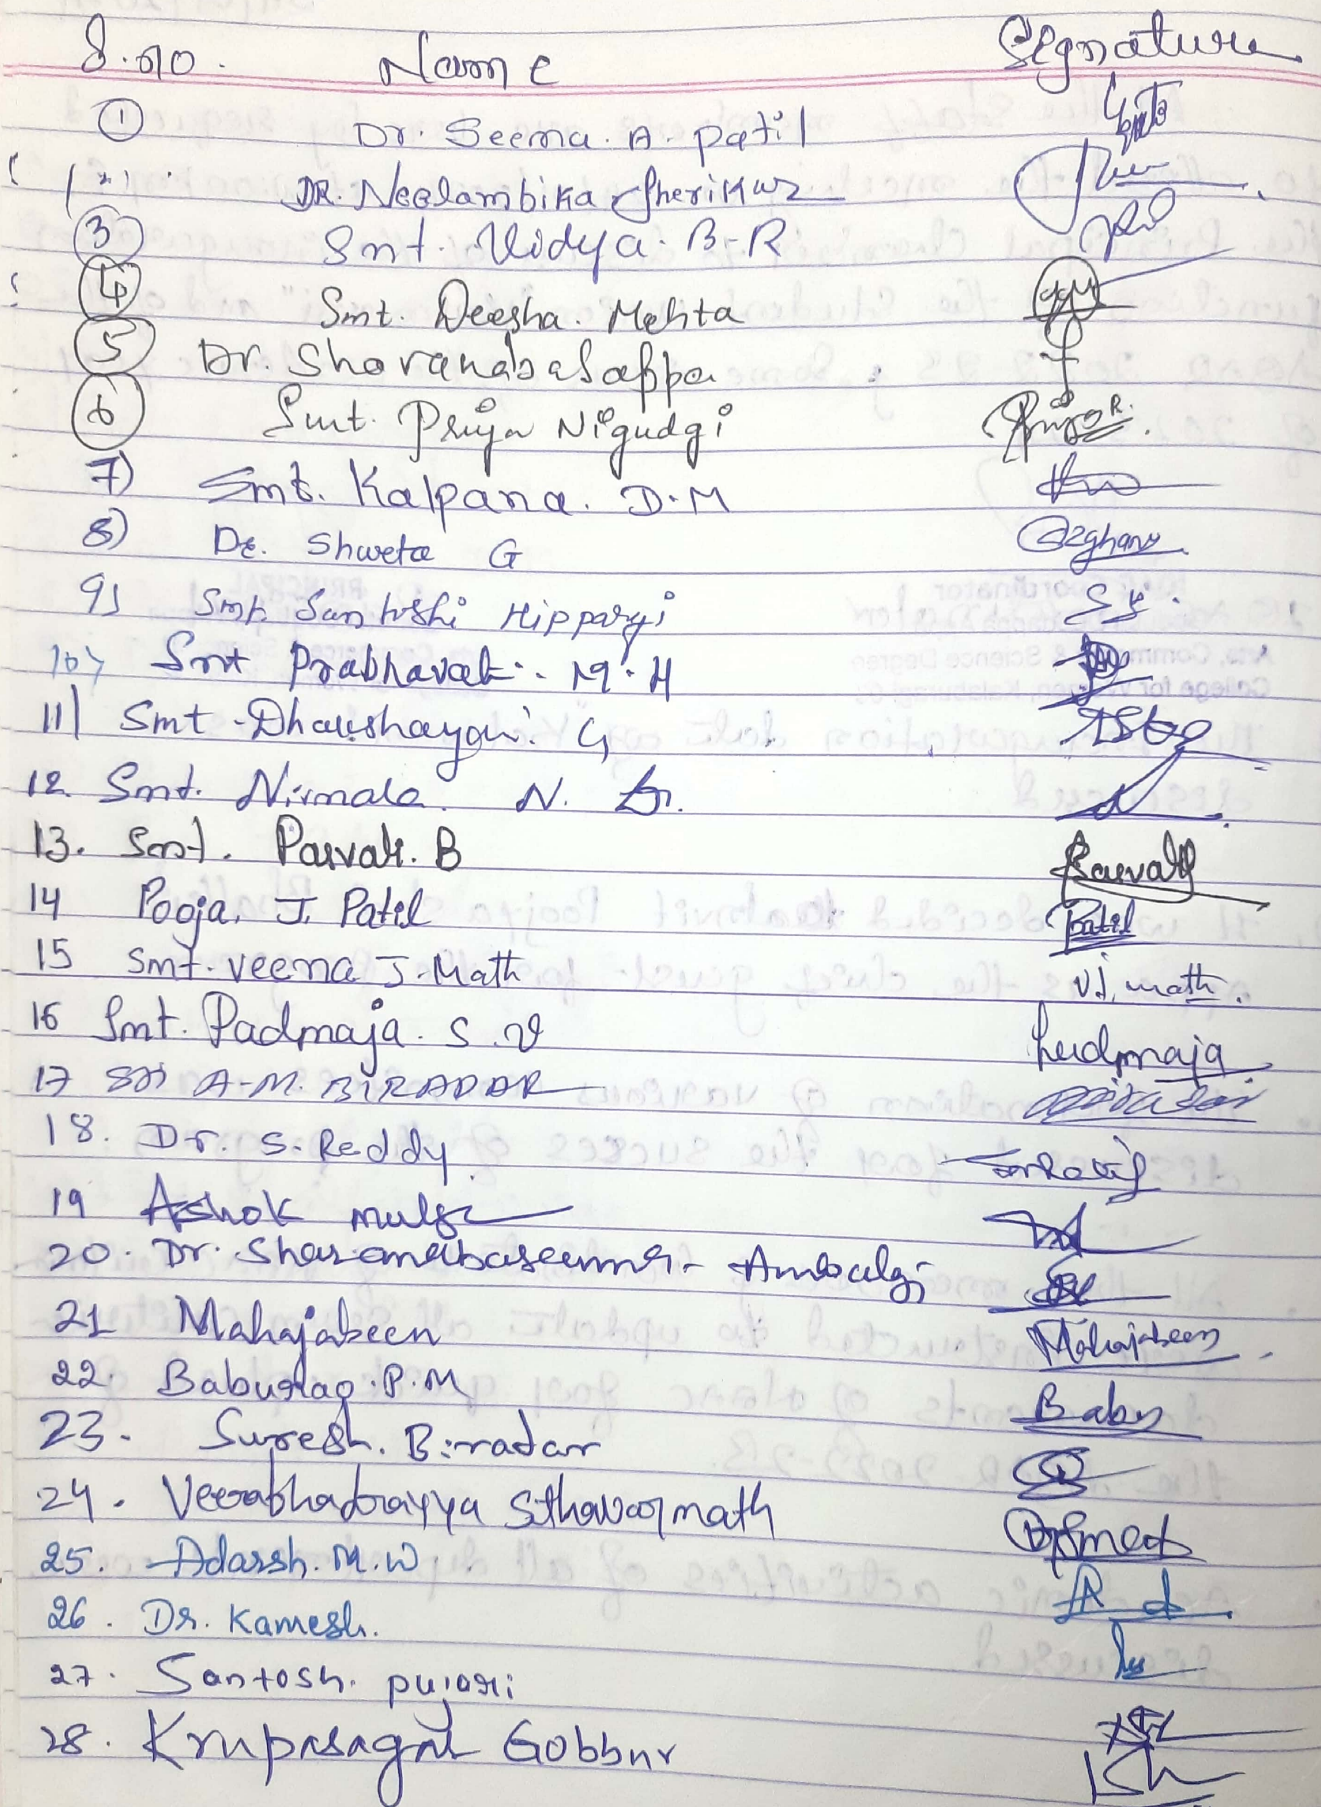 S.no. Name Signature
1 Dr. Seema. A. Patil
DR. Neelambika Sherikar
3 Smt. Vidya. B-R
4 Smt. Deesha. Mehta
5 Dr. Sharanabasappa
6 Smt. Priya Nigudgi
7) Smt. Kalpana. D.M
8) Dr. Shweta G
9) Smt. Santoshi Hippargi
10) Smt Prabhavati. M.H
11) Smt. G
12. Smt. Nirmala. N.
13. Smt. Parvati. B
14 Pooja. J. Patil Patil
15 Smt. Veena J. Math V.J. math.
16 Smt. Padmaja. S.V Padmaja
17 Sri A-M. BIRADAR
18. Dr. S. Reddy
19 Ashok
20. Dr. Ambalgi
21 Mahajabeen Mahajabeen
22. Baburao. P.M Babu
23. Suresh. Biradar
24. Veerabhadrayya Sthavarmath
25. Adarsh. M.W
26. Dr. Kamesh.
27. Santosh. pujari
28. Krupasagar Gobbur